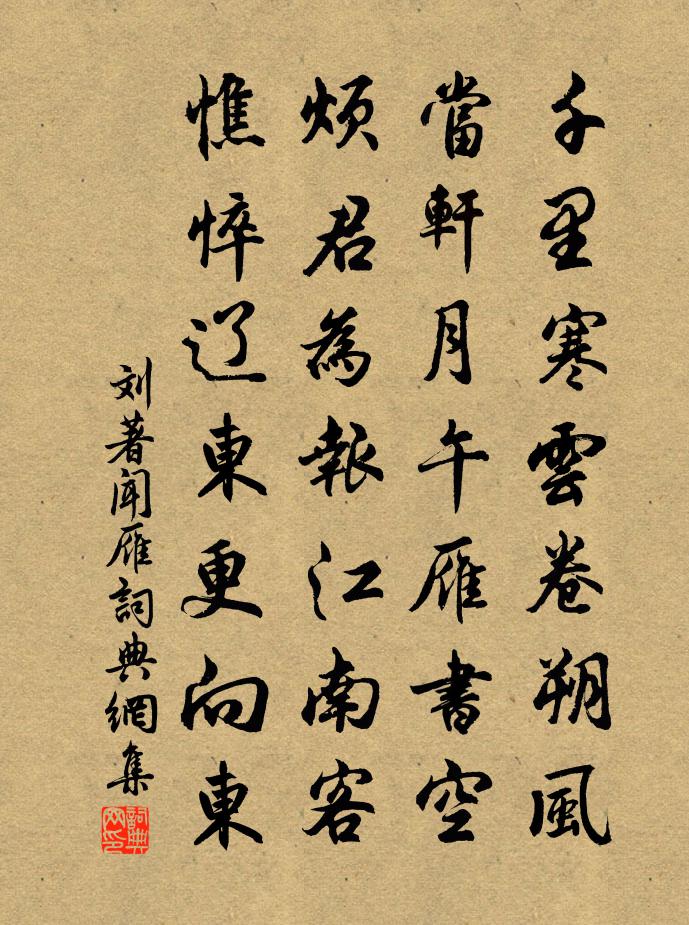 千里寒雲卷朔風
當軒月午雁書空
煩君為報江南客
憔悴辽東更向東
刘著闻雁詞典網集
詞典网印